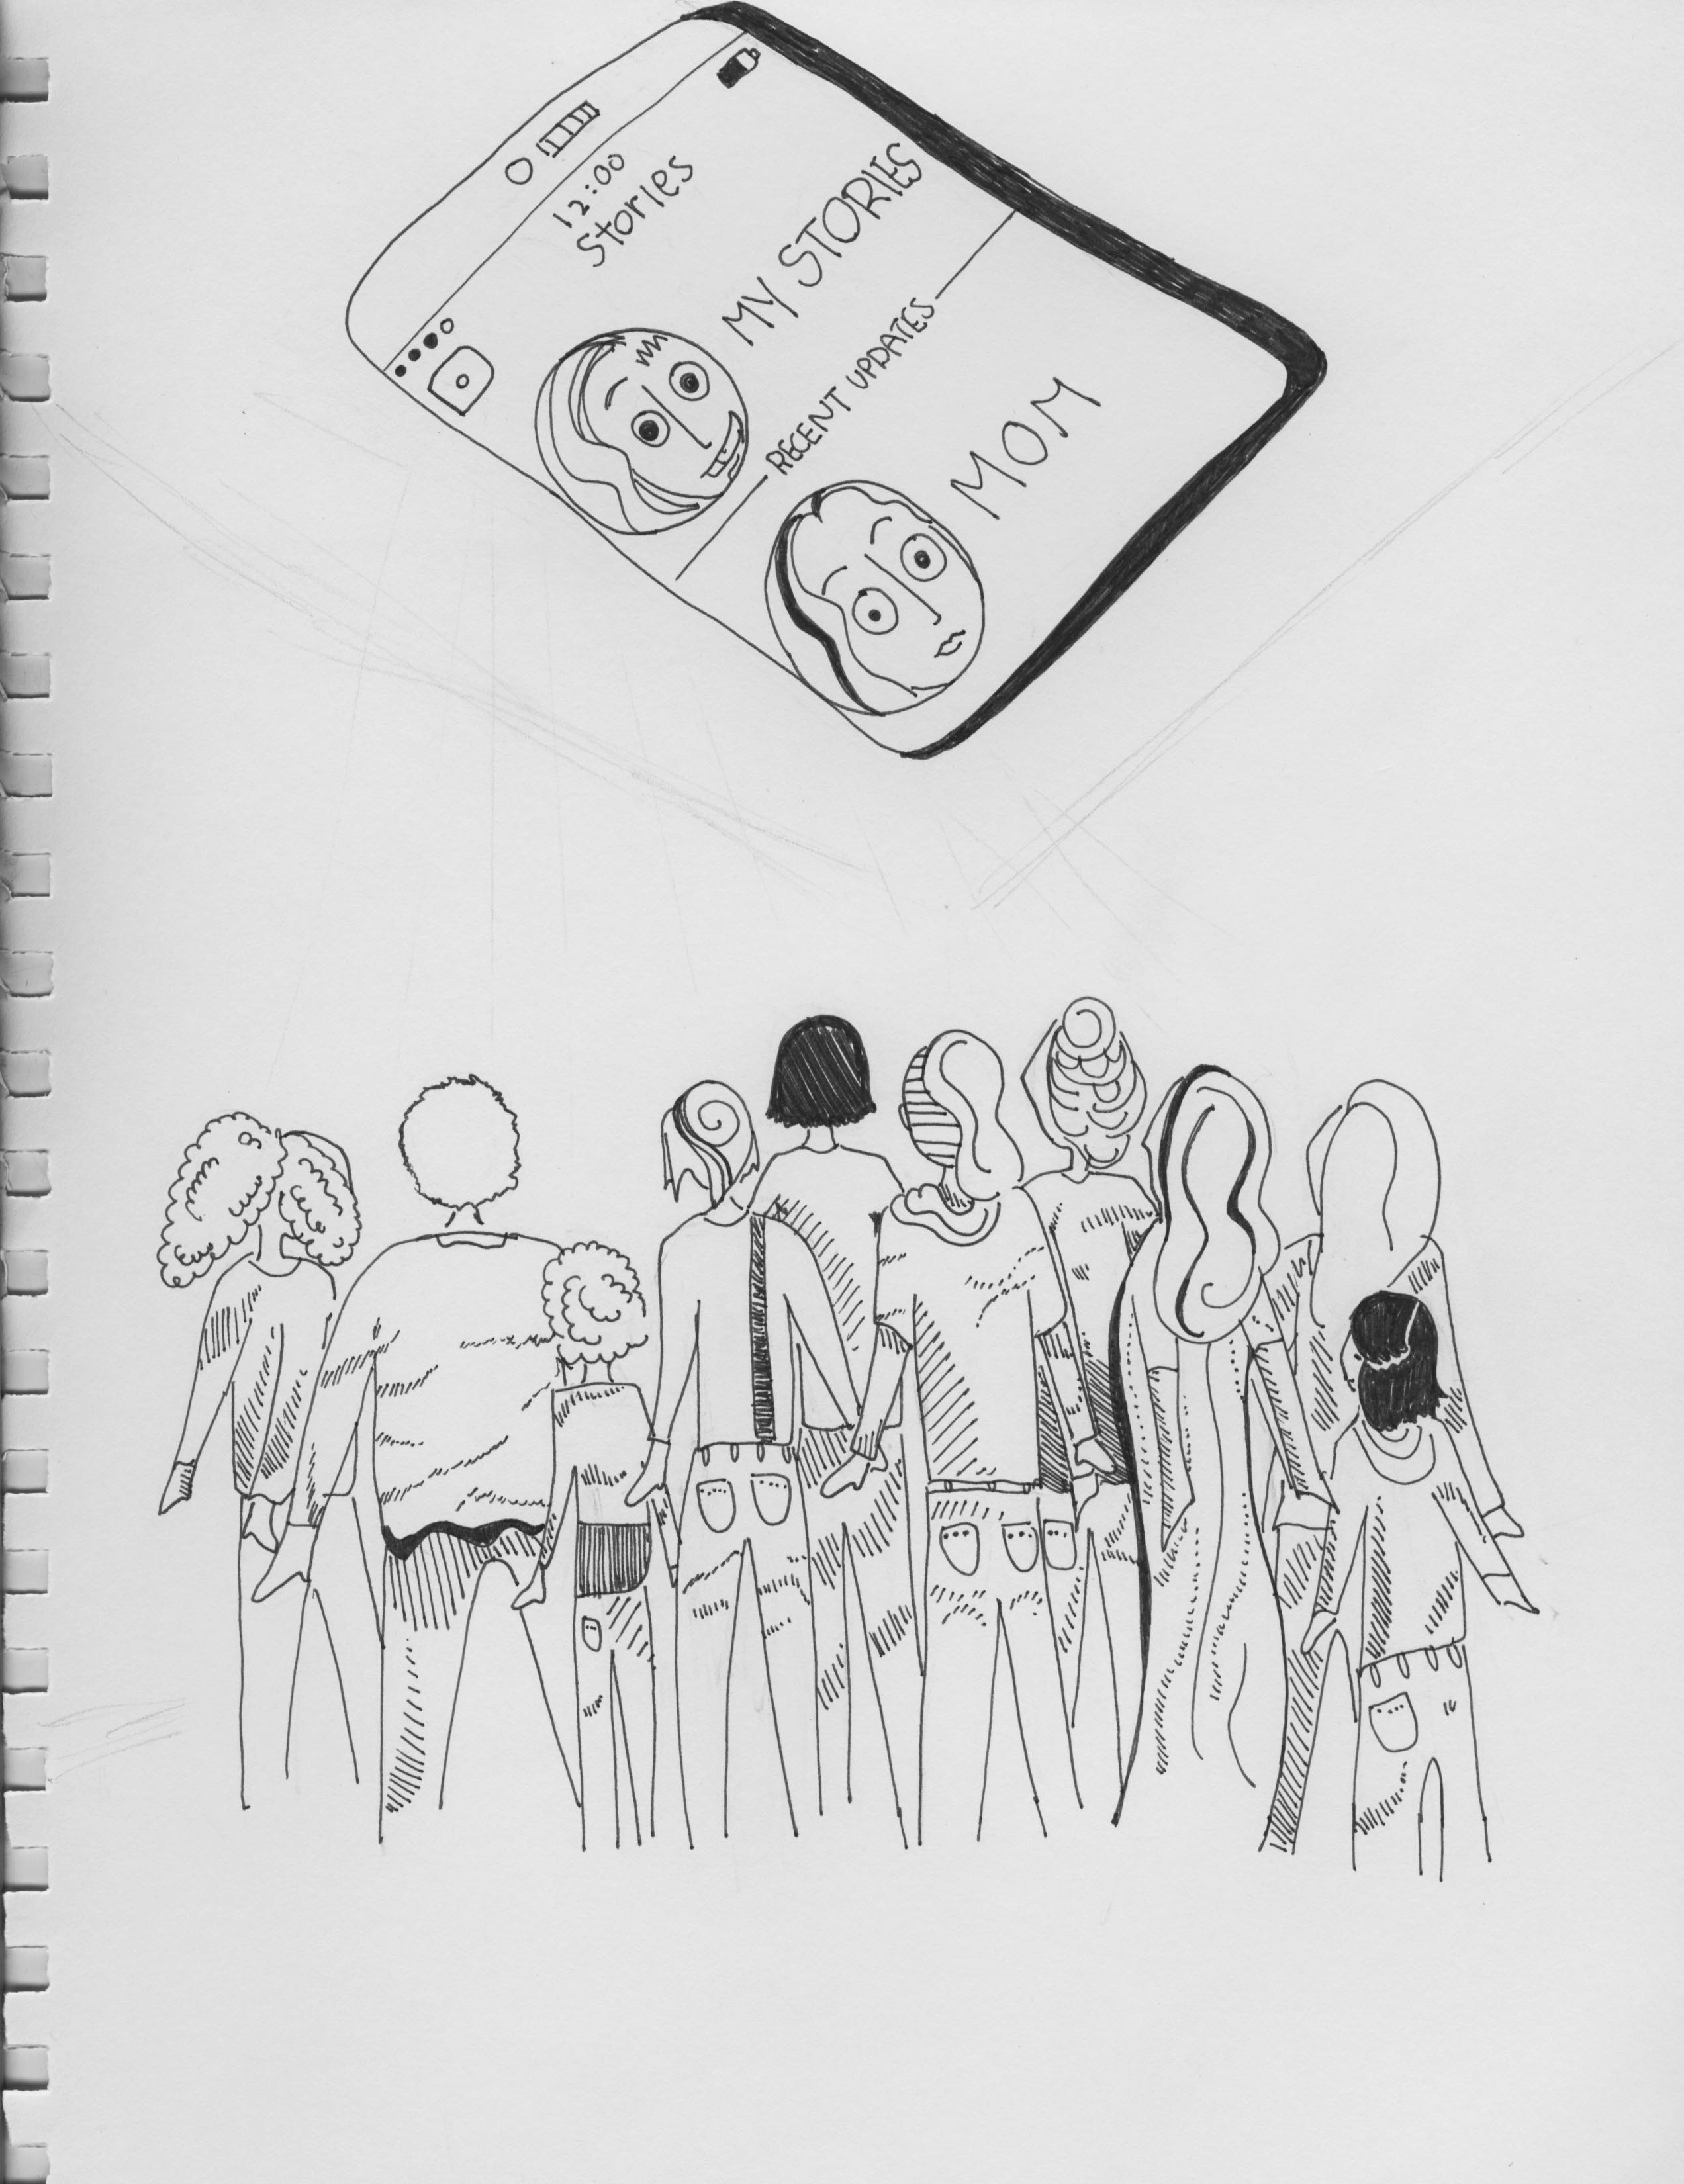 12:00
Stories
MY STORIES
RECENT UPDATES
MOM